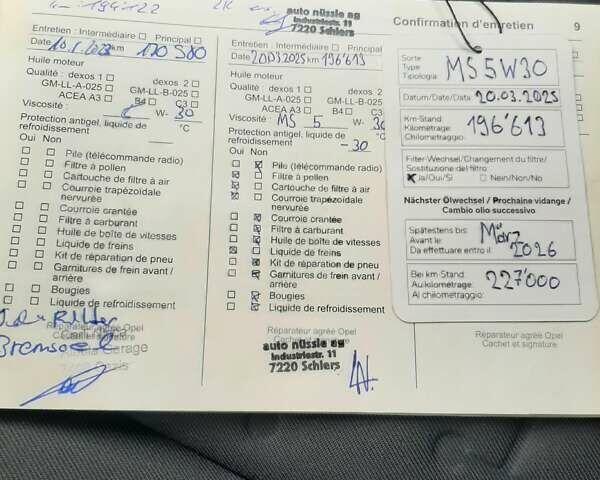 auto nüssle ag
Industriestr. 11
7220 Schiers
Confirmation d'entretien
9
Entretien : Intermédiaire ☐ Principal
Date km 170 580
Huile moteur
Qualité : dexos 1 ☐ dexos 2 ☐
GM-LL-A-025 ☐ GM-LL-B-025 ☐
ACEA A3 ☐ B4 ☐ C3 ☐
Viscosité : W- 30
Protection antigel, liquide de
refroidissement °C
Oui Non
☐ ☐ Pile (télécommande radio)
☐ ☐ Filtre à pollen
☐ ☐ Cartouche de filtre à air
☐ ☐ Courroie trapézoïdale
nervurée
☐ ☐ Courroie crantée
☐ ☐ Filtre à carburant
☐ ☐ Huile de boîte de vitesses
☐ ☐ Liquide de freins
☐ ☐ Kit de réparation de pneu
☐ ☐ Garnitures de frein avant /
arrière
☐ ☐ Bougies
☐ ☐ Liquide de refroidissement
Réparateur agréé Opel
Garage
Entretien : Intermédiaire ☐ Principal
Date 20032025 km 196'613
Huile moteur
Qualité : dexos 1 ☐ dexos 2 ☐
GM-LL-A-025 ☐ GM-LL-B-025 ☐
ACEA A3 ☐ B4 ☐ C3 ☐
Viscosité : MS 5 W- 30
Protection antigel, liquide de
refroidissement -30 °C
Oui Non
Pile (télécommande radio)
Filtre à pollen
Cartouche de filtre à air
Courroie trapézoïdale
nervurée
Courroie crantée
Filtre à carburant
Huile de boîte de vitesses
Liquide de freins
Kit de réparation de pneu
Garnitures de frein avant /
arrière
Bougies
Liquide de refroidissement
Réparateur agréé Opel
Cachet et signature
auto nüssle ag
Industriestr. 11
7220 Schiers
Sorte
Type
Tipologia: MS 5W30
Datum/Date/Data: 20.03.2025
Km-Stand:
Kilométrage:
Chilometraggio: 196'613
Filter-Wechsel/Changement du filtre/
Sostituzione del filtro
☒ Ja/Oui/Si ☐ Nein/Non/No
Nächster Ölwechsel / Prochaine vidange /
Cambio olio successivo
Spätestens bis:
Avant le:
Da effettuare entro il: März 2026
Bei km-Stand:
Au kilométrage:
Al chilometraggio: 227'000
Réparateur agréé Opel
Cachet et signature